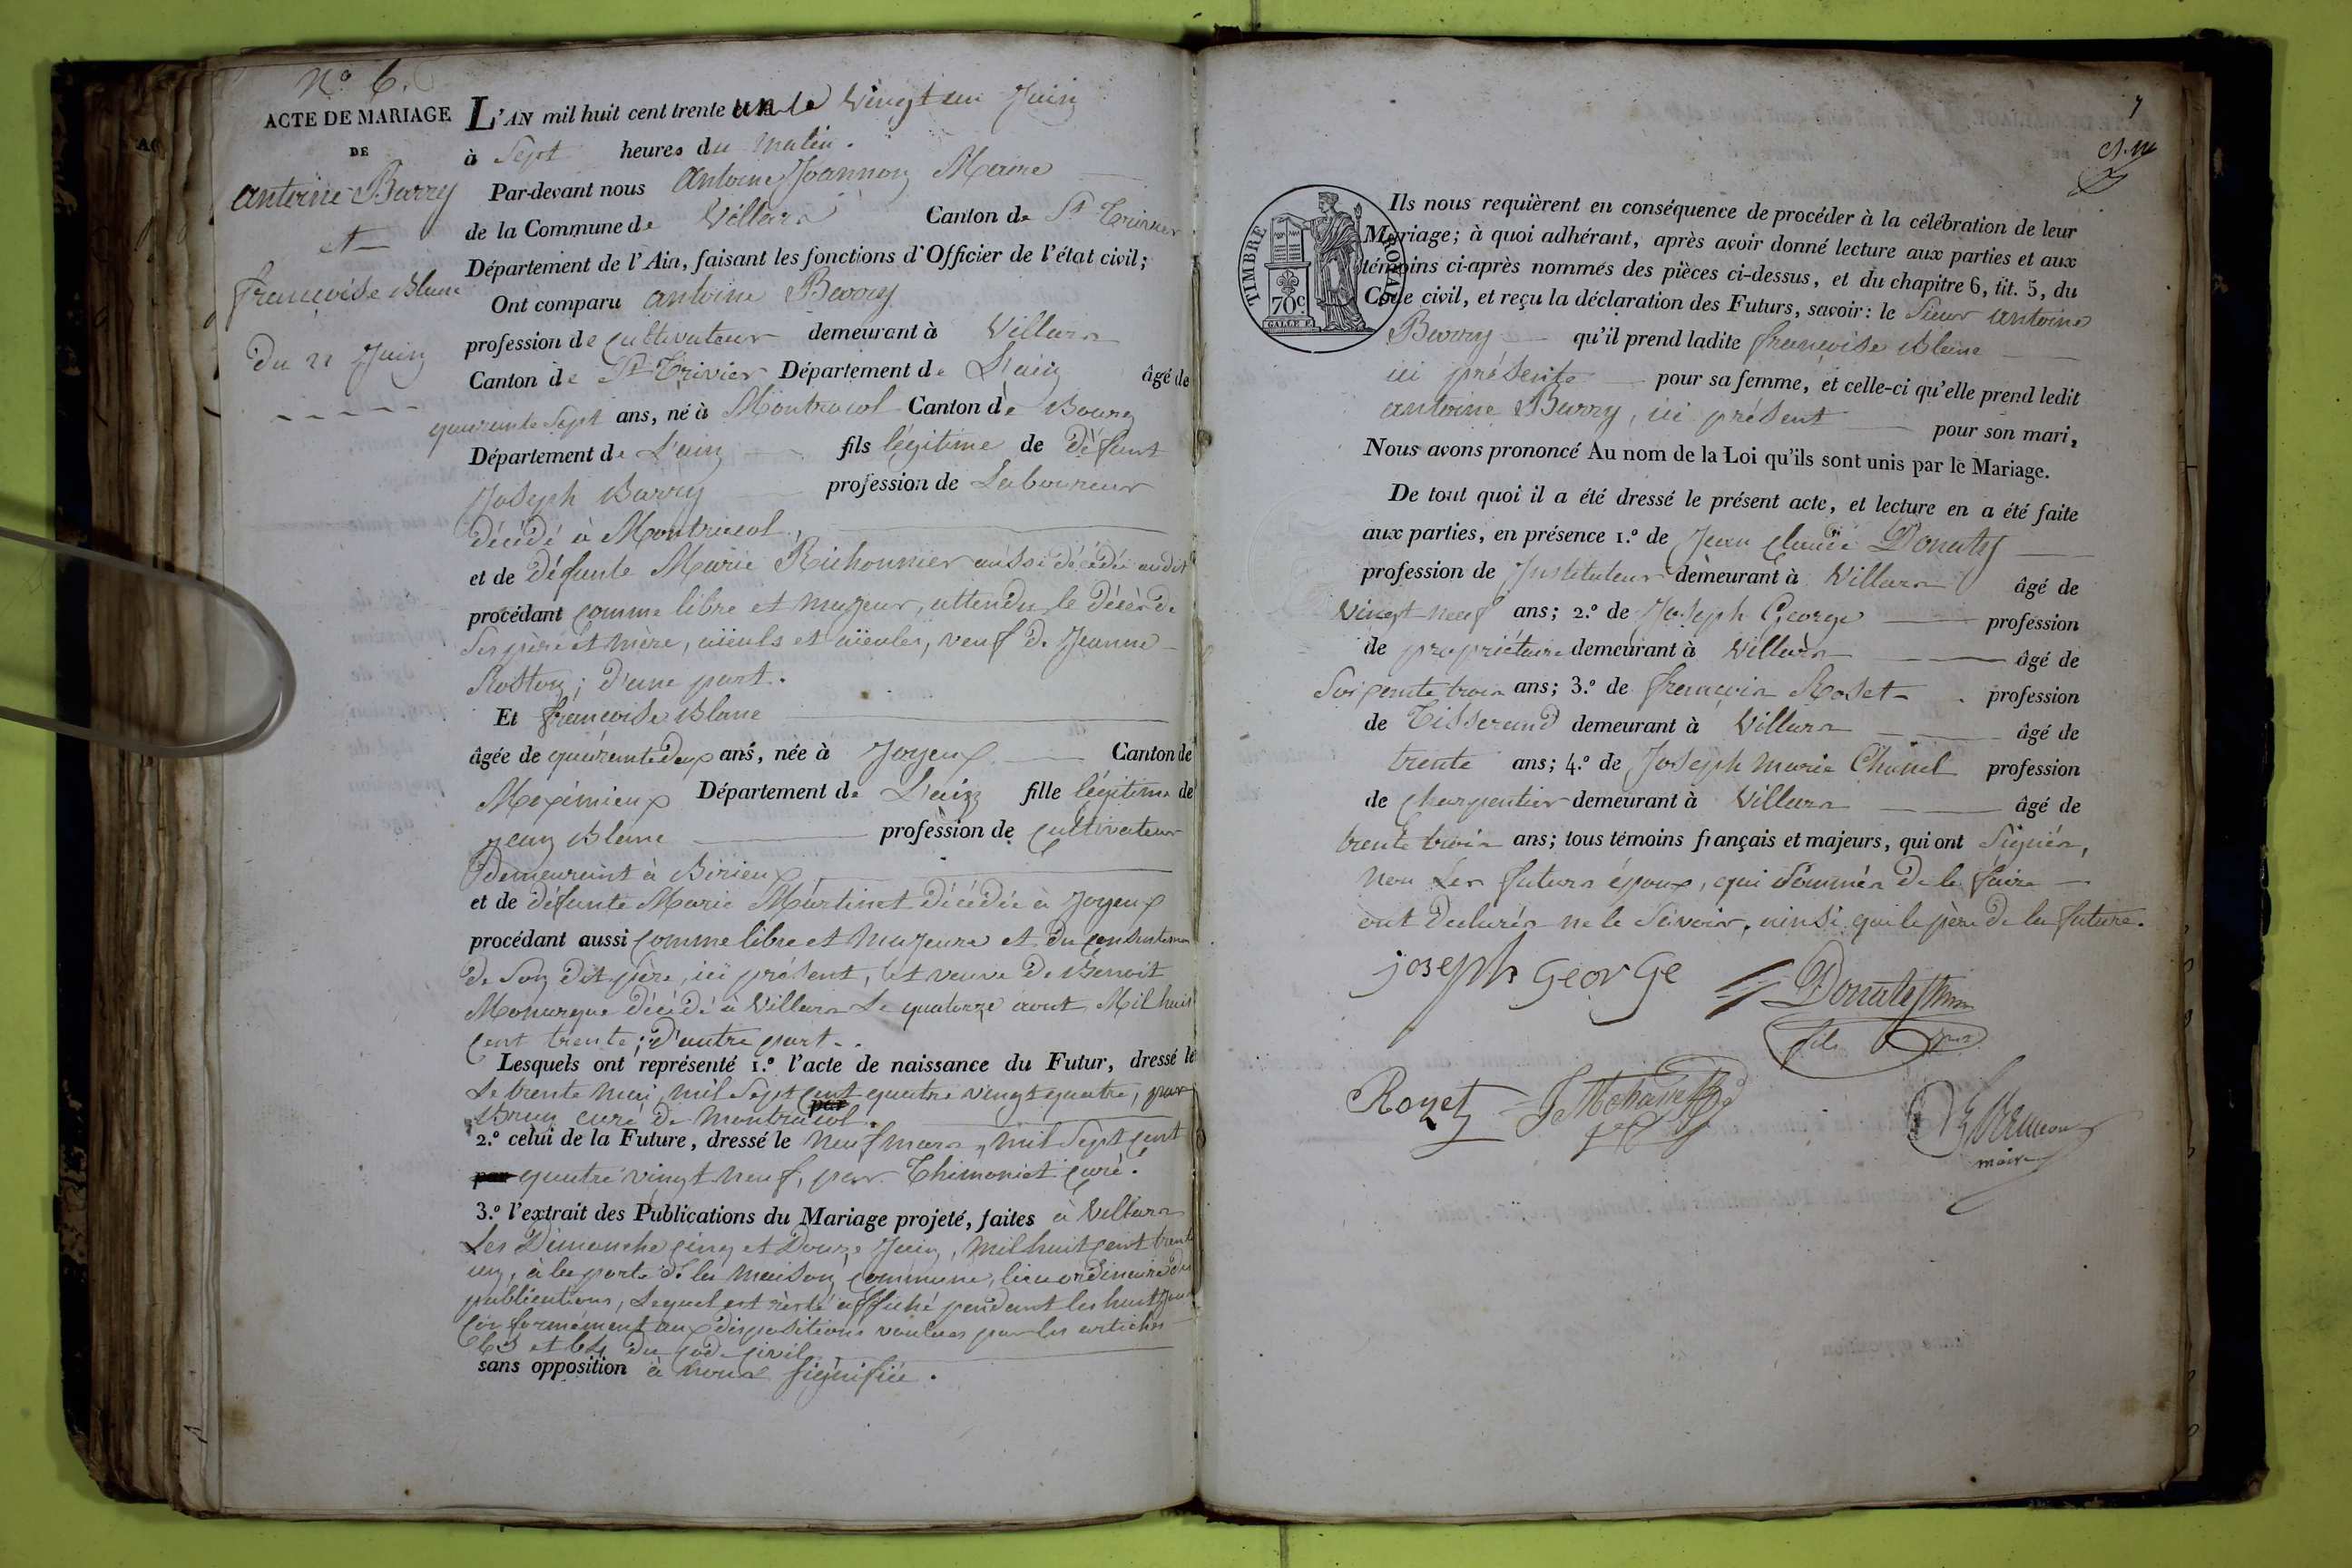 N.o 6.
ACTE DE MARIAGE
DE
antoine Barry
et
françoise Blanc
Du 21 Juin
L'AN mil huit cent trente un le Vingt un Juin
à Sept heures du matin.
Par-devant nous Antoine Joannon Maire
de la Commune de Villars Canton de St Trivier
Département de l'Ain, faisant les fonctions d'Officier de l'état civil;
Ont comparu antoine Barry
profession de cultivateur demeurant à Villars
Canton de St Trivier Département de L'ain âgé de
quarante Sept ans, né à Montracol Canton de Bourg
Département de L'ain fils légitime de Défunt
Joseph Barry profession de Laboureur
décédé à Montracol,
et de défunte Marie Richonnier aussi décédée audit
procédant comme libre et majeur, attendu le décès de
Ses père et mère, aïeuls et aïeules, veuf de Jeanne
D'une part.
Et françoise Blanc
âgée de quarante deux ans, née à Joyeux Canton de
Meximieux Département de L'ain fille légitime de
jean Blanc profession de cultivateur
Demeurant à Birieux
et de défunte Marie Martinet Décédée à Joyeux
procédant aussi comme libre et majeure et du consentement
de Son dit père, ici présent, et veuve de Benoit
Monarque décédé à Villars Le quatorze aout Mil huit
cent trente; D'autre part.
Lesquels ont représenté 1.o l'acte de naissance du Futur, dressé le
Le trente mai, mil Sept cent quatre vingt quatre, par
Brun curé de Montracol.
2.o celui de la Future, dressé le neuf mars, mil Sept cent
quatre vingt neuf, par Thimoniet curé.
3.o l'extrait des Publications du Mariage projeté, faites à Villars
Les Dimanche cinq et Douze Juin, mil huit cent trente
un, à la porte de la maison commune, lieu ordinaire des
publications, Lequel est resté affiché pendant les huit jours
conformément aux dispositions voulues par les articles
63 et 64 du code civil
sans opposition à nous signifiée.
7
TIMBRE ROYAL
70c.
Ils nous requièrent en conséquence de procéder à la célébration de leur
Mariage; à quoi adhérant, après avoir donné lecture aux parties et aux
témoins ci-après nommés des pièces ci-dessus, et du chapitre 6, tit. 5, du
Code civil, et reçu la déclaration des Futurs, savoir: le Sieur antoine
Barry qu'il prend ladite françoise Blanc
ici présente pour sa femme, et celle-ci qu'elle prend ledit
antoine Barry, ici présent pour son mari,
Nous avons prononcé Au nom de la Loi qu'ils sont unis par le Mariage.
De tout quoi il a été dressé le présent acte, et lecture en a été faite
aux parties, en présence 1.o de Jean claude Donat
profession de Instituteur demeurant à Villars âgé de
Vingt neuf ans; 2.o de Joseph George profession
de propriétaire demeurant à Villars âgé de
Soixante trois ans; 3.o de françois Roset profession
de Tisserand demeurant à Villars âgé de
trente ans; 4.o de Joseph marie Chanel profession
de charpentier demeurant à Villars âgé de
trente trois ans; tous témoins français et majeurs, qui ont Signés,
non Les futurs époux, qui Sommés de le faire
ont Declarés ne le Savoir, ainsi que le père de la future.
joseph george
Donat
fils
Rozet
maire